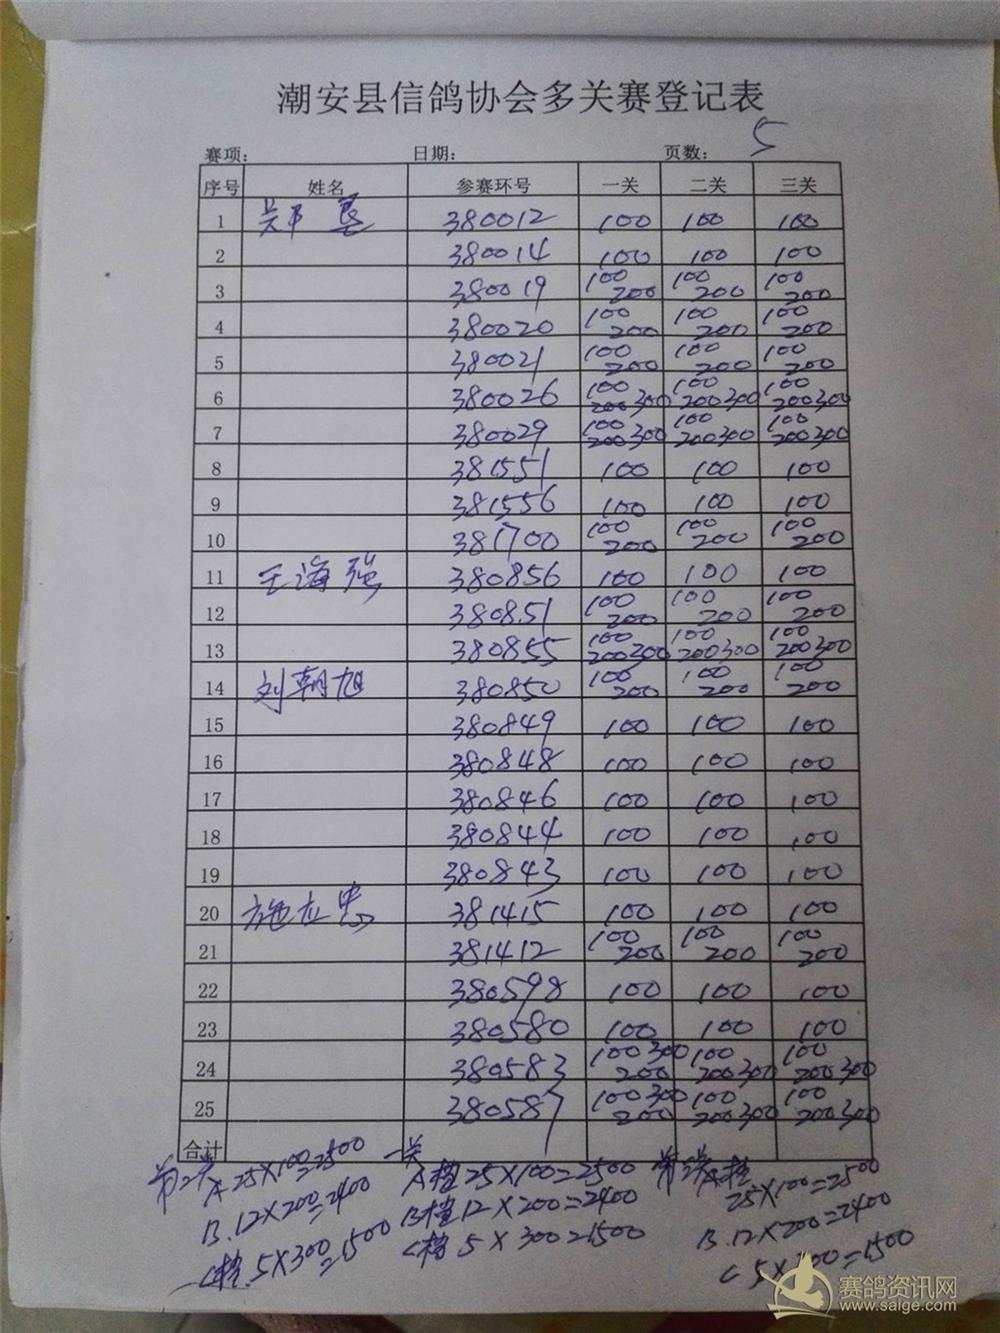 潮安县信鸽协会多关赛登记表
赛项: 日期: 页数: 5
序号 姓名 参赛环号 一关 二关 三关
1 380012 100 100 100
2 380014 100 100 100
3 380019 100 200 100 200 100 200
4 380020 100 200 100 200 100 200
5 380021 100 200 100 200 100 200
6 380026 100 200 300 100 200 300 100 200 300
7 380029 100 200 300 100 200 300 100 200 300
8 381551 100 100 100
9 381556 100 100 100
10 381700 100 200 100 200 100 200
11 王海强 380856 100 100 100
12 380851 100 200 100 200 100 200
13 380855 100 200 300 100 200 300 100 200 300
14 刘朝旭 380850 100 200 100 200 100 200
15 380849 100 100 100
16 380848 100 100 100
17 380846 100 100 100
18 380844 100 100 100
19 380843 100 100 100
20 施左忠 381415 100 100 100
21 381412 100 200 100 200 100 200
22 380598 100 100 100
23 380580 100 100 100
24 380583 100 300 200 100 200 300 100 200 300
25 380587 100 300 200 100 200 300 100 200 300
合计
第二关 一关 第三关
A 25×100=2500 A档 25×100=2500 A档 25×100=2500
B.12×200=2400 B档 12×200=2400 B.12×200=2400
C档.5×300=1500 C档 5×300=1500 C 5×300=1500
赛鸽资讯网
www.saige.com